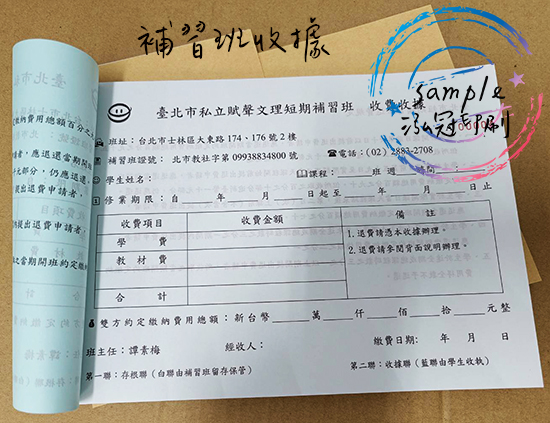 補習班收據
sample
泓冠印刷
臺北市私立賦聲文理短期補習班 收費收據
班址:台北市士林區大東路174、176號2樓
補習班證號: 北市教社字第09938834800號 ☎電話:(02) 2883-2708
學生姓名: 課程: 班 週 時間: :
修業期限:自 年 月 日起至 年 月 日止
收費項目 收費金額 備註
學費 1.退費請憑本收據辦理。
教材費 2.退費請參閱背面說明辦理。
合計
雙方約定繳納費用總額:新台幣 萬 仟 佰 拾 元整
繳費日期: 年 月 日
班主任:譚素梅 經收人:
第一聯:存根聯(白聯由補習班留存保管) 第二聯:收據聯(藍聯由學生收執)
臺北市
繳納費用總額百分之
者,應退還當期開班
餘部分,仍應退還。
提出退費申請者,
提出退費申請者,
之當期開班約定繳